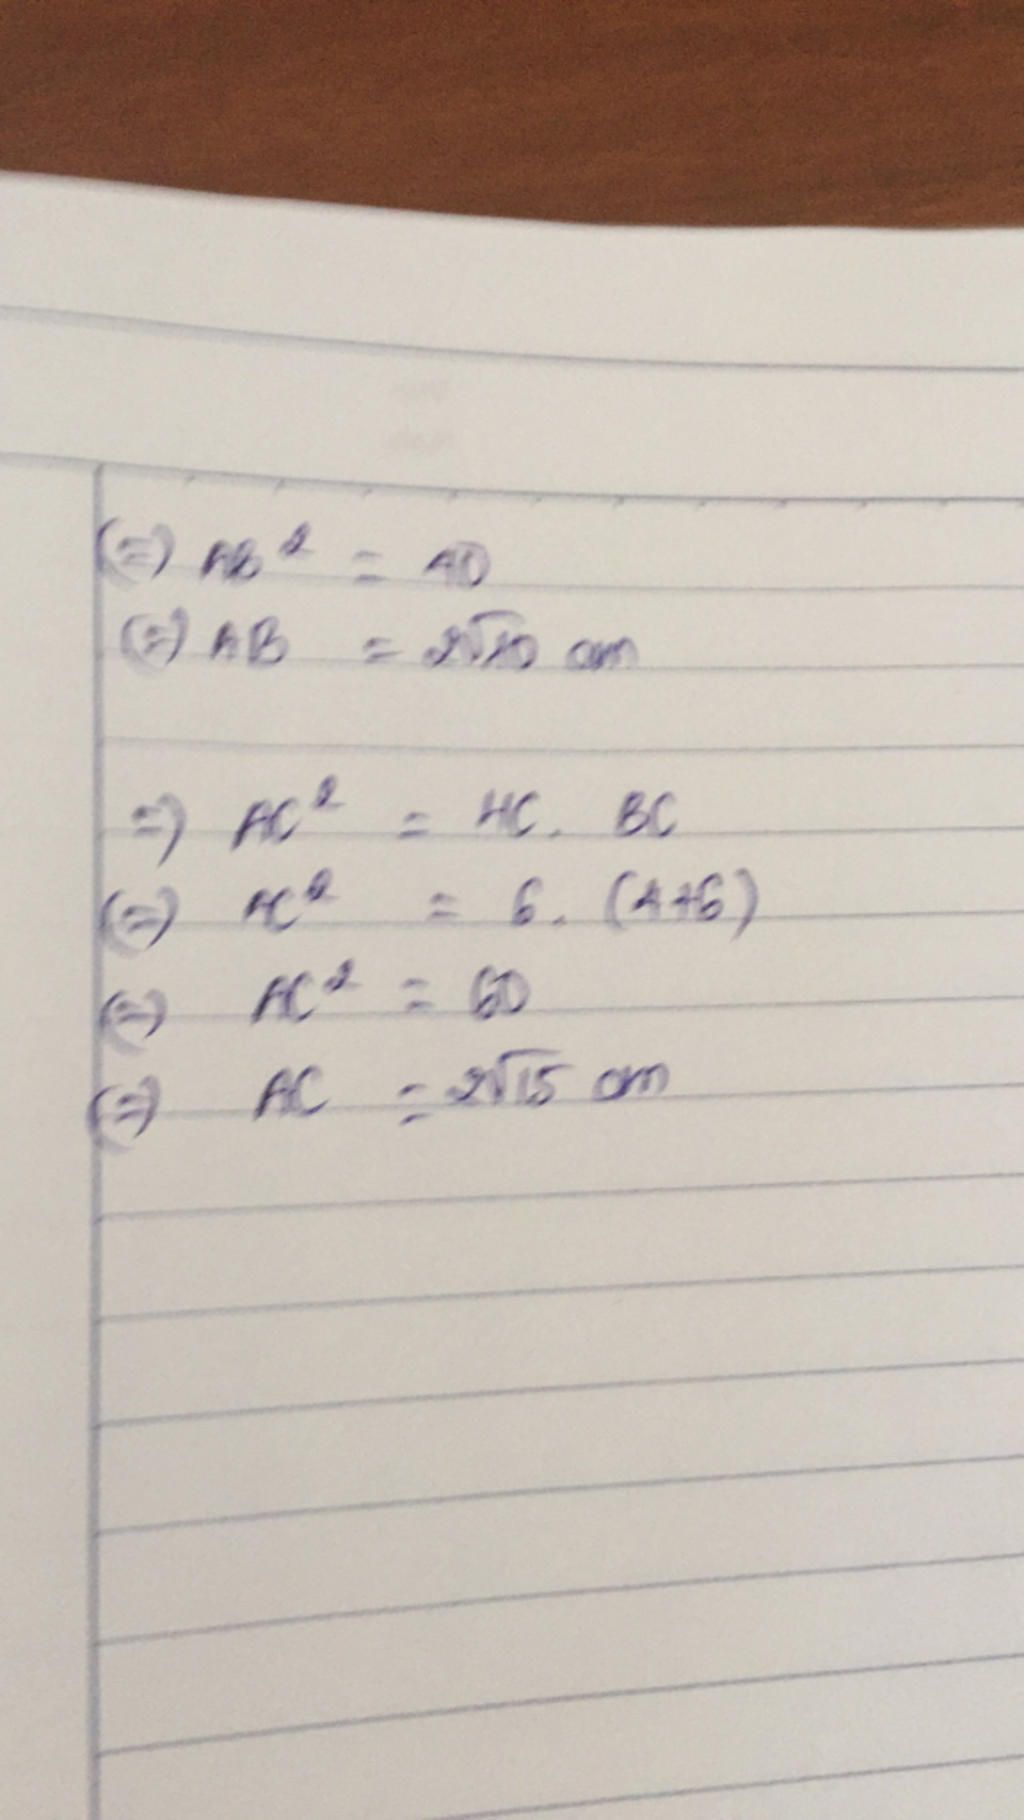 (=) AB² = 40
(=) AB = 2√10 cm
=) AC² = HC. BC
(=) AC² = 6. (4+6)
(=) AC² = 60
(=) AC = 2√15 cm